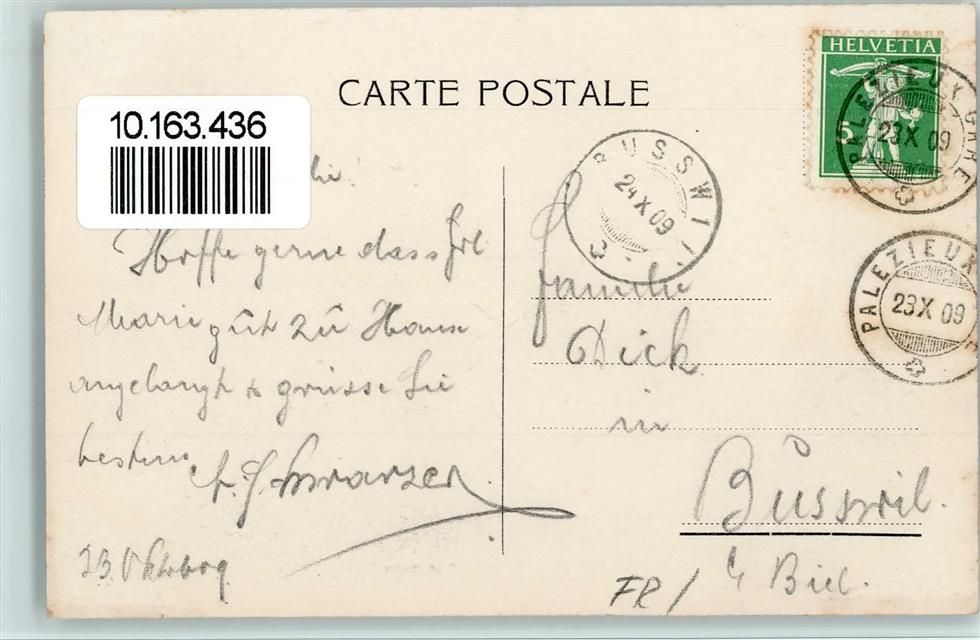 HELVETIA
5
CARTE POSTALE
10.163.436
PALEZIEUX GARE
23 X 09
BUSSWIL
24 X 09
PALEZIEUX
23 X 09
Hoffe gerne dass Frl
Marie gût zû Hause
angelangt & grüsse Sie
bestens
A. Schwarzer
23. Oktob 09
Familie
Dick
in
Büsswil.
b/ Biel.
FR/